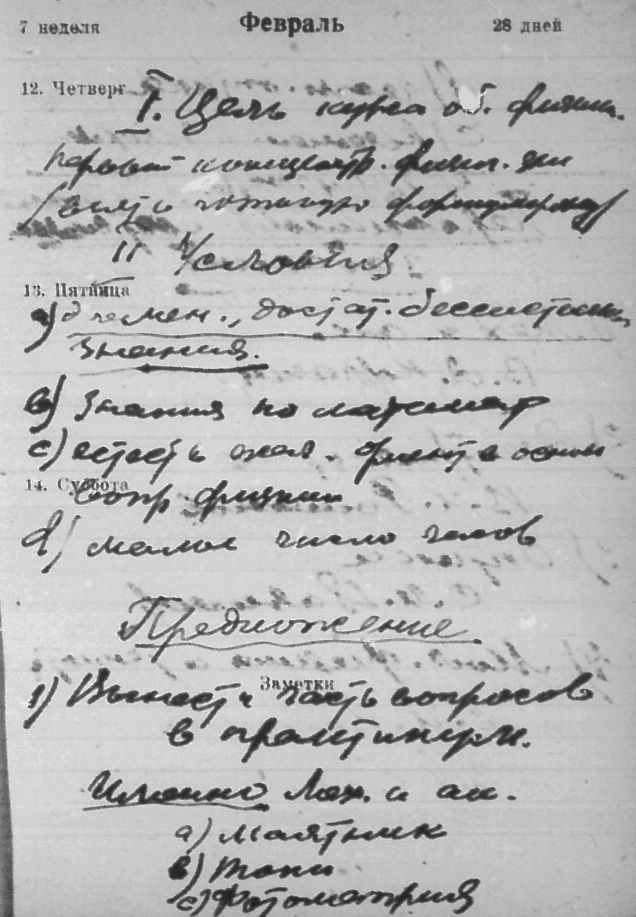 7 неделя Февраль 28 дней
12. Четверг I. Цель курса об. физики.
первый концентр. физич.
II Условия
13. Пятница
а) элемен., достат. бессистемн.
знания.
в) Знания по математ
с) есть
14. Суббота вопр физики
d) малое число часов
Предложение.
Заметки
1) Вынести часть вопросов
в практикум.
Именно Мех. и ак.
а) маятник
в) токи
с) Фотометрия